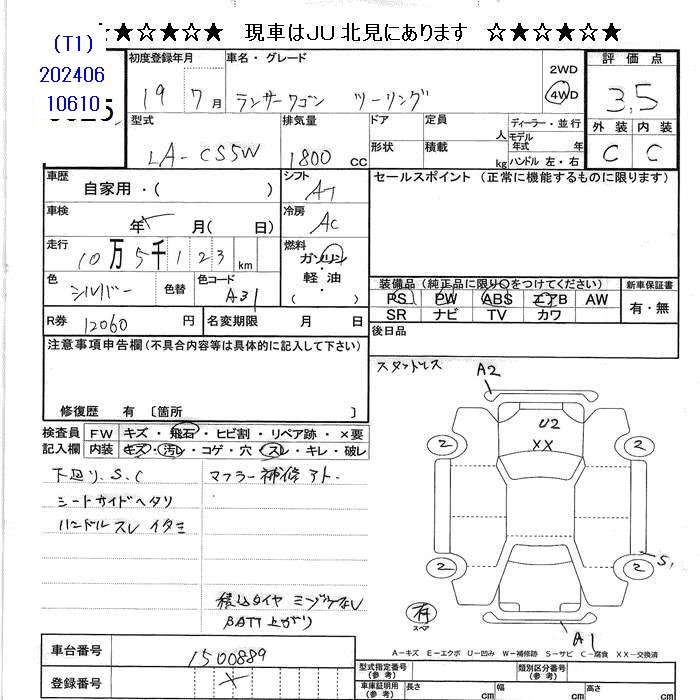 ☆★☆★☆★☆ 現車はJU北見にあります ☆★☆★☆★☆
(T1)
202406
10610
初度登録年月 車名・グレード 2WD 評価点
19 7月 ランサーワゴン ツーリング 4WD 3.5
型式 排気量 ドア 定員 人 ディーラー・並行 外装 内装
LA-CS5W 1800cc 形状 積載 kg モデル年式 年式 ハンドル 左・右 C C
車歴 自家用・( ) シフト AT セールスポイント (正常に機能するものに限ります)
車検 年 月( 日) 冷房 AC
走行 10万5千123km 燃料 ガソリン・軽油・( )
色 シルバー 色替 色コード A31 装備品 (純正品に限り○をつけてください) 新車保証書
PS PW ABS エアB AW 有・無
SR ナビ TV カワ
R券 12060円 名変期限 月 日 後日品
注意事項申告欄(不具合内容等は具体的に記入して下さい) スタッドレス
修復歴 有 〔箇所 〕
検査員記入欄 FW キズ・飛石・ヒビ割・リペア跡・×要
内装 キズ・汚レ・コゲ・穴・スレ・キレ・破レ
下回リ.S.C マフラー補修アト.
シートサイドヘタリ
ハンドルスレイタミ
積込タイヤ ミゾナシ
BATT上がり
A2
U2
XX
2 2
2 2
S1
有
スペア
A1
A-キズ E-エクボ U-凹み W-補修跡 S-サビ C-腐食 XX-交換済
車台番号 1500889 型式指定番号(参考) 類別区分番号(参考)
登録番号 × 車庫証明用(参考) 長さ cm 幅 cm 高さ cm